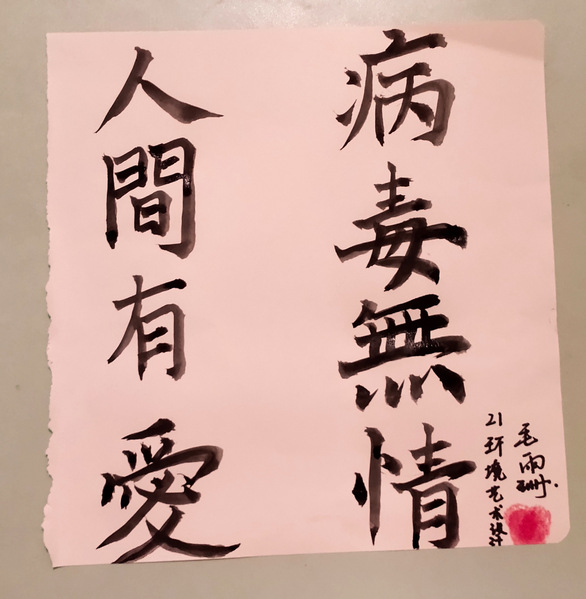 病毒無情
人間有愛
毛雨珊
21环境艺术设计